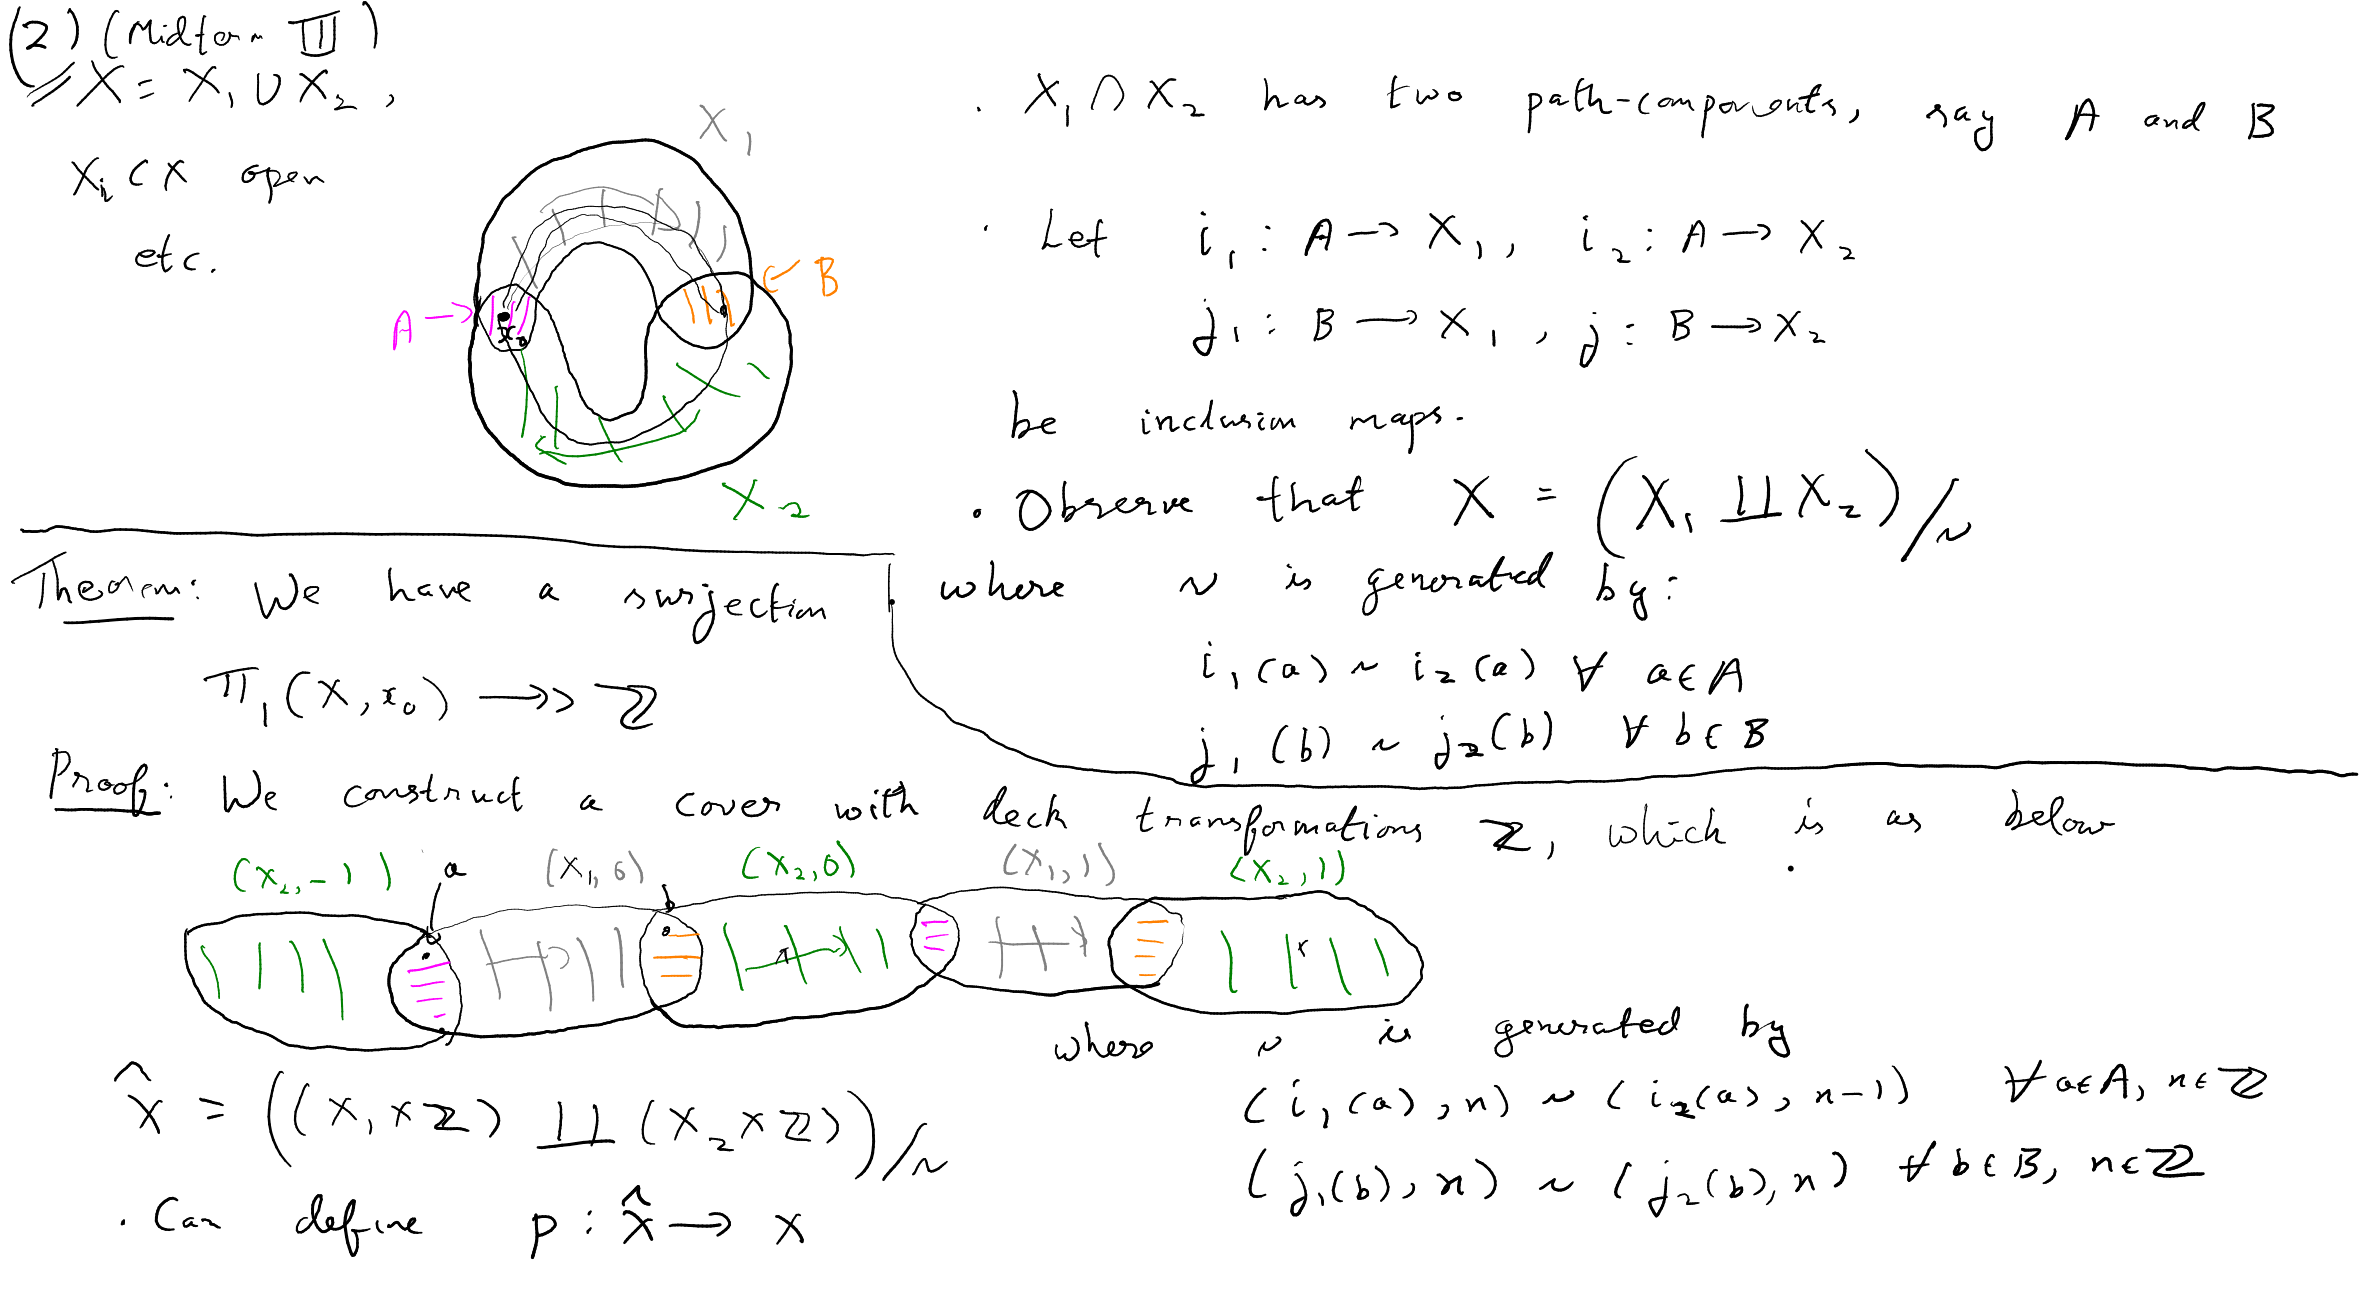 (2) (Midterm II)
X = X₁ ∪ X₂ ,
Xᵢ ⊂ X open
etc.
X₁
A →
x₀
← B
X₂
. X₁ ∩ X₂ has two path-components, say A and B
. Let i₁ : A → X₁ , i₂ : A → X₂
j₁ : B → X₁ , j : B → X₂
be inclusion maps.
. Observe that X = (X₁ ⨿ X₂)/~
where ~ is generated by:
i₁(a) ~ i₂(a) ∀ a∈A
j₁(b) ~ j₂(b) ∀ b∈B
Theorem: We have a surjection
π₁(X, x₀) ↠ ℤ
Proof: We construct a cover with deck transformations ℤ, which is as below.
(X₂, -1) a (X₁, 0) b (X₂, 0) (X₁, 1) (X₂, 1)
X̂ = ((X₁ × ℤ) ⨿ (X₂ × ℤ))/~
where ~ is generated by
(i₁(a), n) ~ (i₂(a), n-1) ∀ a∈A, n∈ℤ
(j₁(b), n) ~ (j₂(b), n) ∀ b∈B, n∈ℤ
. Can define p : X̂ → X